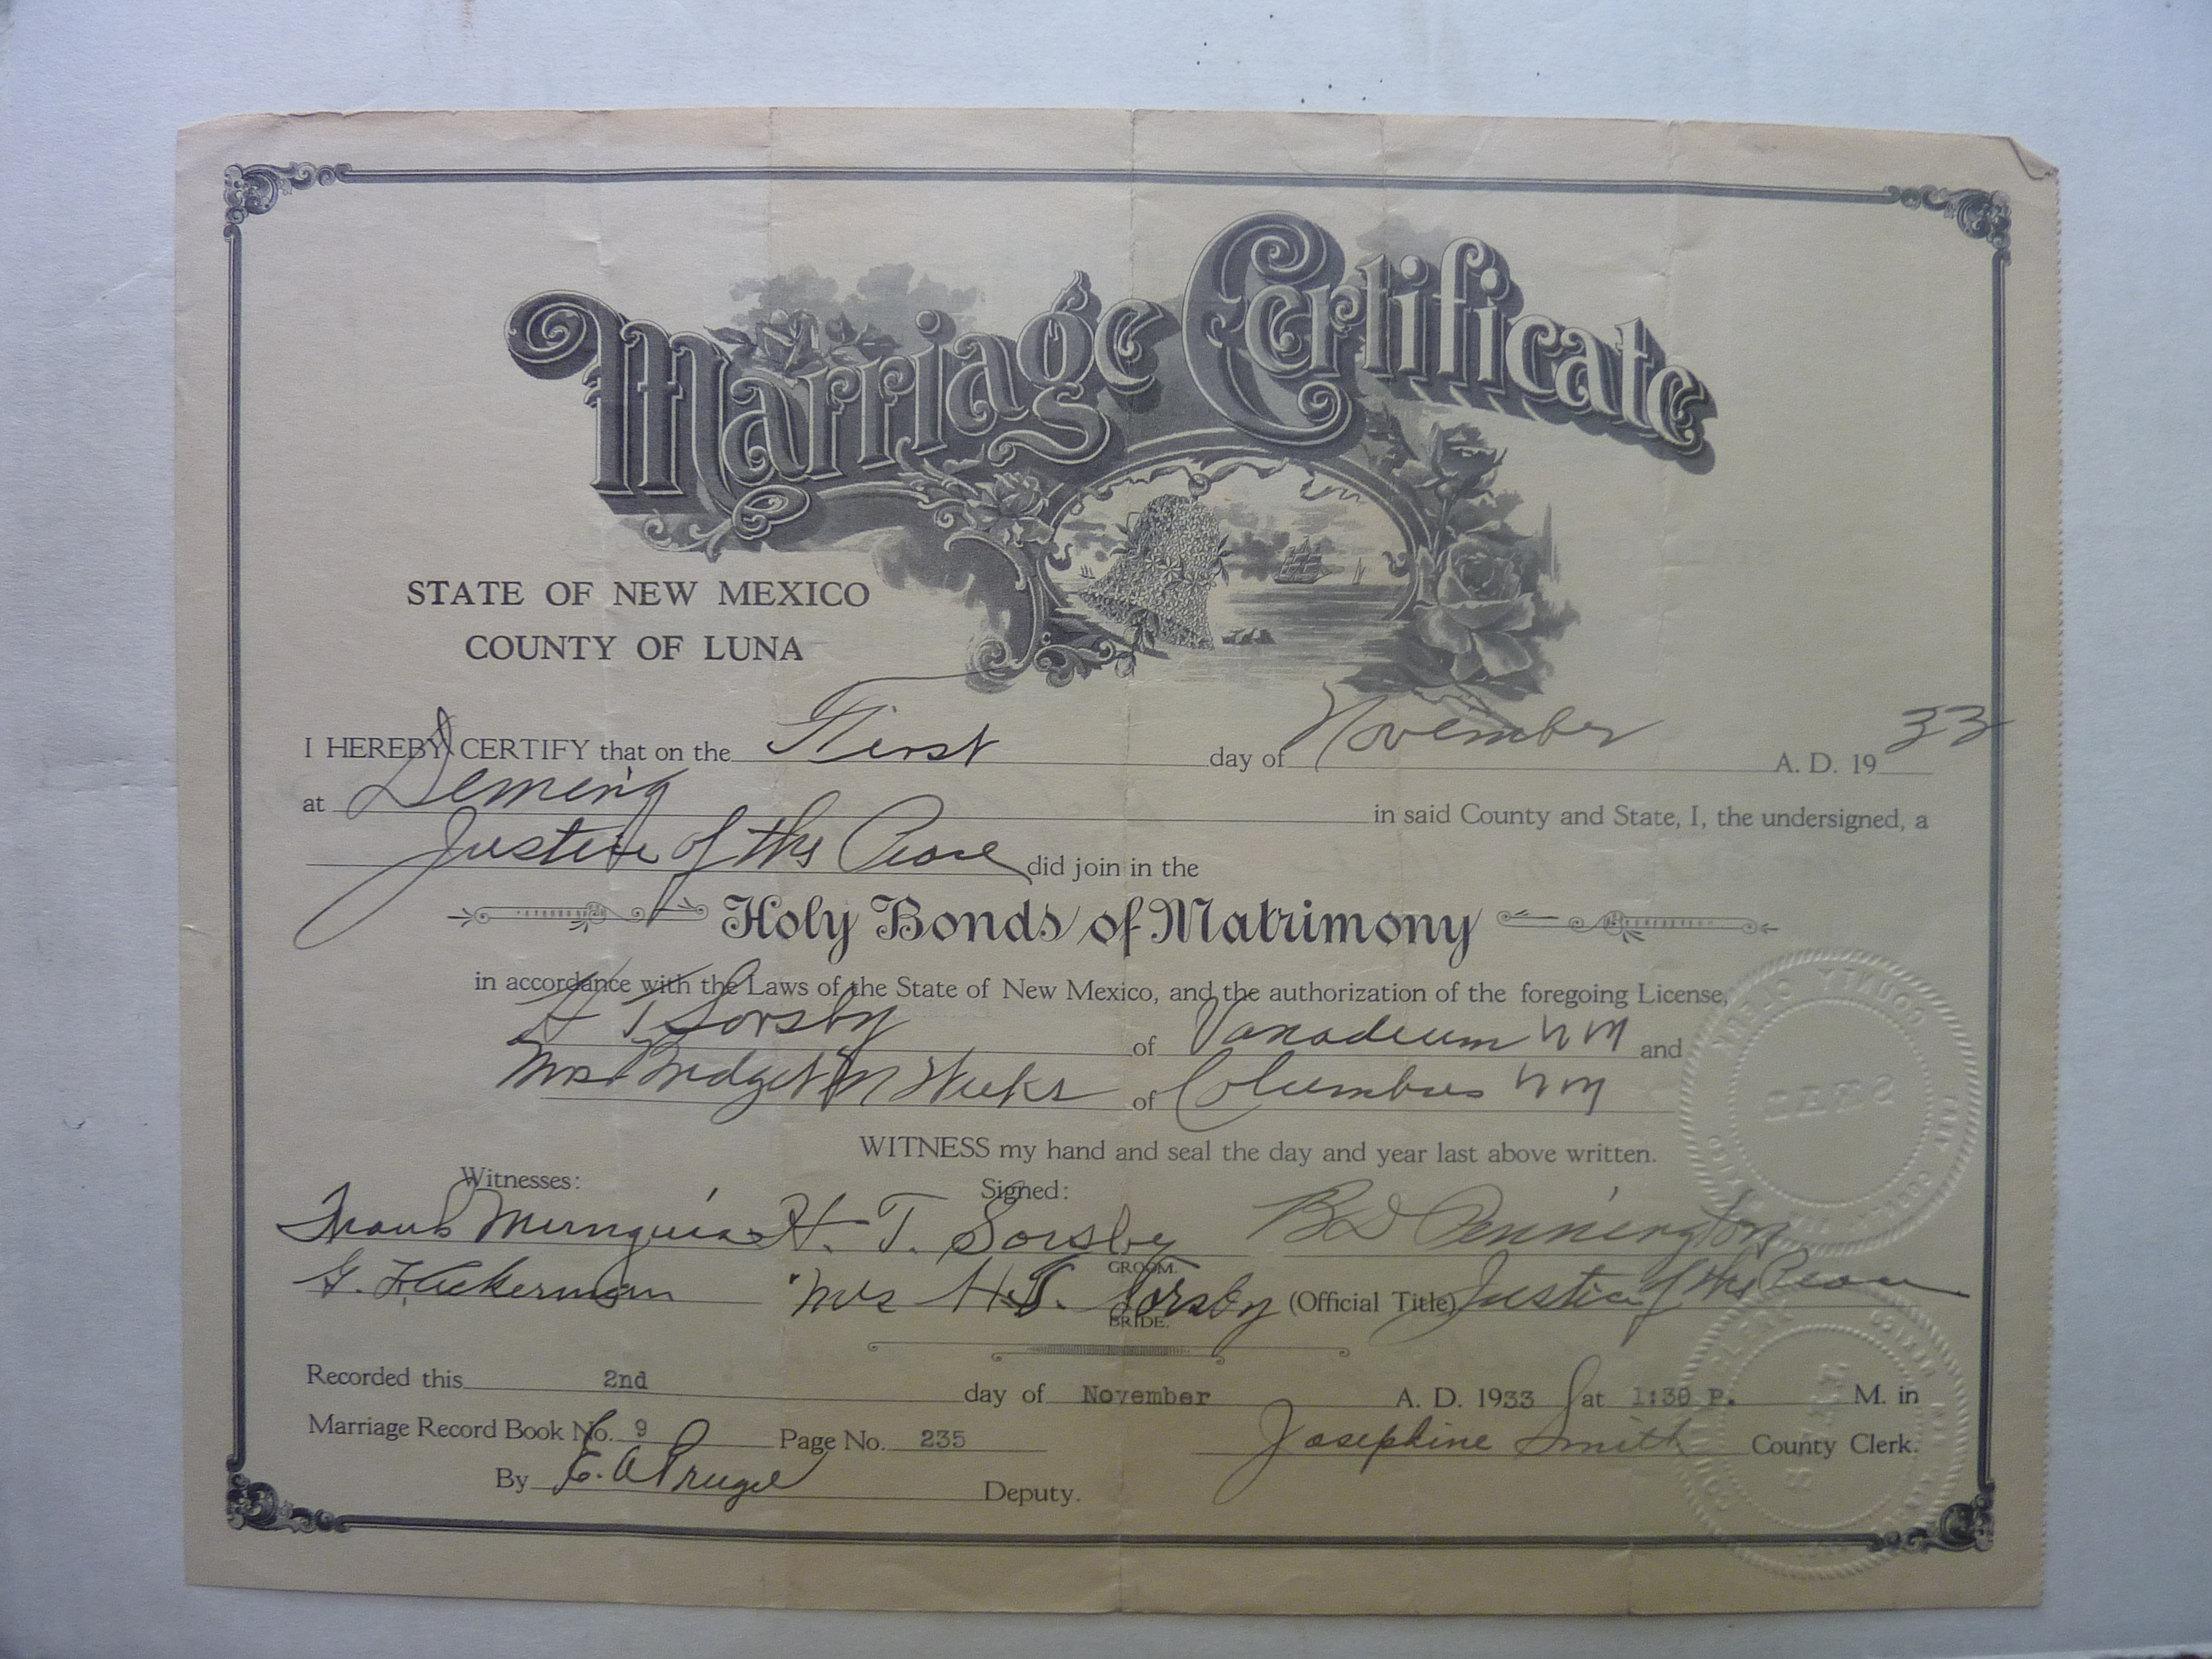 Marriage Certificate
STATE OF NEW MEXICO
COUNTY OF LUNA
I HEREBY CERTIFY that on the First day of November A. D. 1933
at Deming in said County and State, I, the undersigned, a
Justice of the Peace did join in the
Holy Bonds of Matrimony
in accordance with the Laws of the State of New Mexico, and the authorization of the foregoing License,
H T Sorsby of Vanadium N M and
Mrs Bridget M Weeks of Columbus N M
WITNESS my hand and seal the day and year last above written.
Witnesses: Signed:
Frank H. T. Sorsby B D Pennington
GROOM.
G. F. Ackerman Mrs H. T. Sorsby (Official Title) Justice of the Peace
BRIDE.
Recorded this 2nd day of November A. D. 1933 at 1:30 P. M. in
Marriage Record Book No. 9 Page No. 235 Josephine Smith County Clerk.
By Deputy.
COUNTY CLERK
SEAL